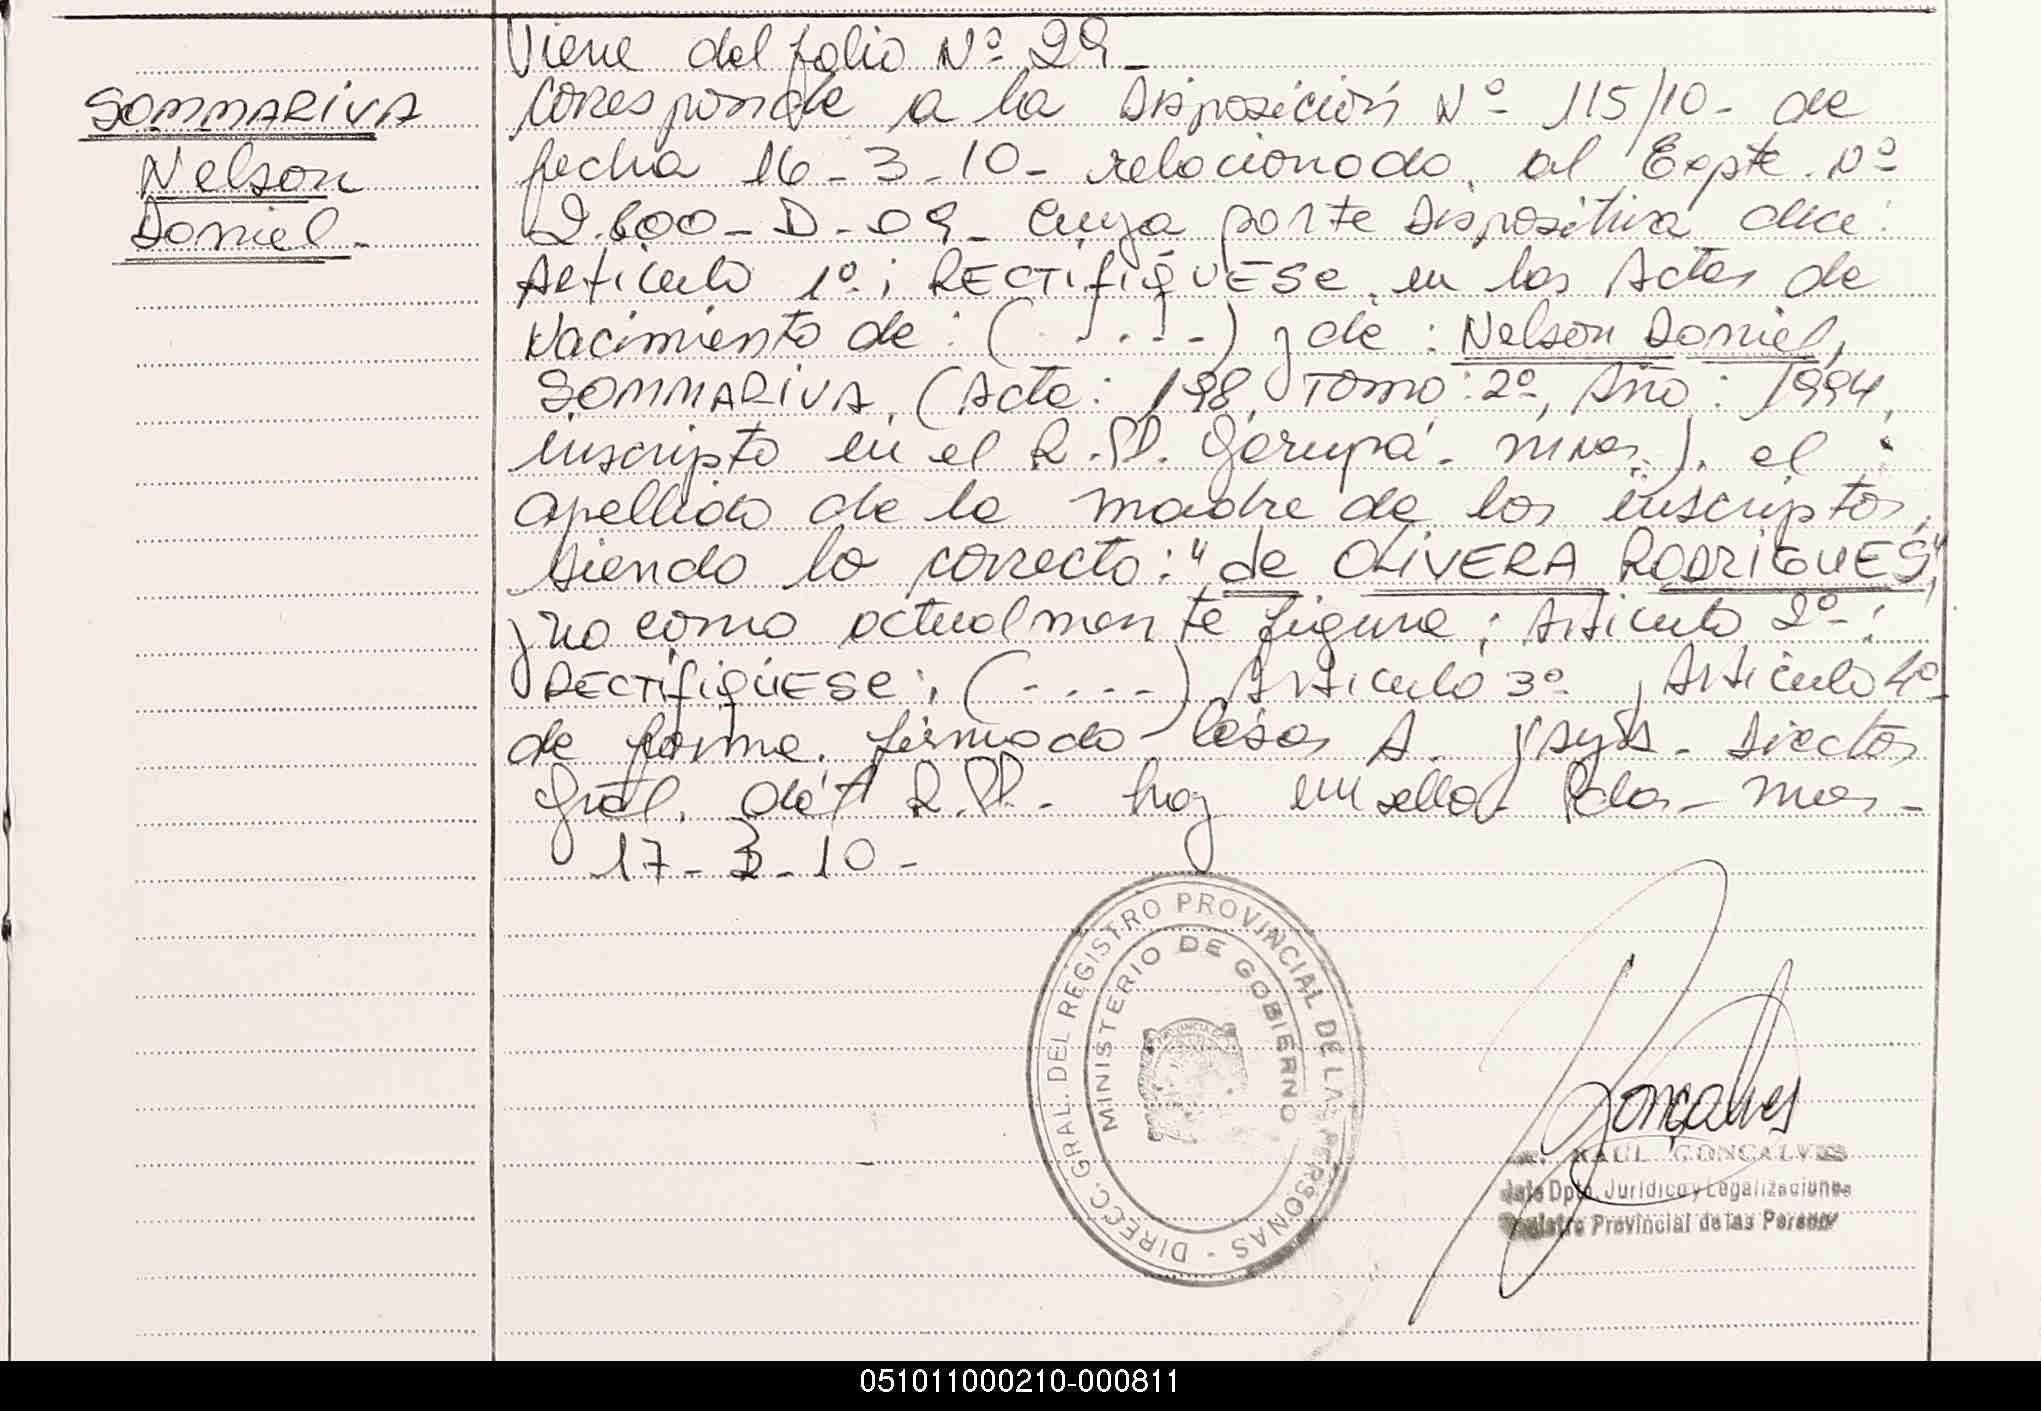 Viene del folio Nº 29-
SOMMARIVA
Nelson
Daniel-
Corresponde a la Disposición Nº 115/10- de
fecha 16-3-10- relacionado, al Expte. Nº
2.600-D-09- Cuya parte Dispositiva dice:
Artículo 1º; RECTIFIQUESE, en las Actas de
Nacimiento de: (.....) y de: Nelson Daniel,
SOMMARIVA, (Acta: 198, Tomo: 2º, Año: 1994,
inscripto en el R.PP. Garupá- Mnes.), el
apellido de la madre de los inscriptos,
siendo lo correcto: "de OLIVERA RODRIGUES",
y no como actualmente figura; Artículo 2º:
RECTIFIQUESE; (.....) Artículo 3º y Artículo 4º
de forma. firmado César A. Director
Gral. del R.PP. hay un sello- Pdas- Mnes-
17-3-10-
DIRECC. GRAL. DEL REGISTRO PROVINCIAL DE LAS PERSONAS -
MINISTERIO DE GOBIERNO
PROVINCIA DE
Gonçalves
RAUL GONCALVES
Jefe Dpto. Jurídico y Legalizaciones
Registro Provincial de las Person
051011000210-000811